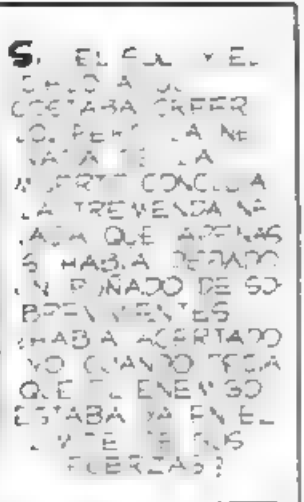 S, EL SOL Y EL
COSTABA CREER
LO. PERO LA NE
VADA DE LA
MUERTE CONCLUIA
LA TREMENDA
QUE APENAS
HABIA DEJADO
UN PUÑADO DE SO
BREVIVIENTES
HABIA ACERTADO
YO CUANDO DECIA
QUE EL ENEMIGO
ESTABA YA EN EL
LIMITE DE SUS
FUERZAS?